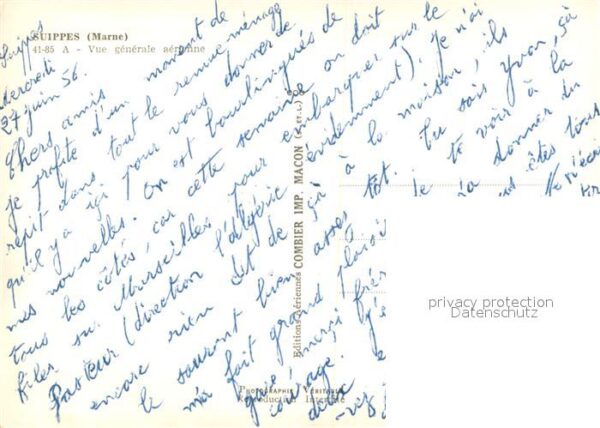 SUIPPES (Marne)
41-85 A - Vue générale aérienne
Suippes
Mercredi
27 juin 56.
Chers amis
je profite d'un moment de
répit dans tout le remue-ménage
qu'il y a ici pour vous donner de
mes nouvelles. On est bourlingués de
tous les côtés, car cette semaine on doit
filer sur Marseille pour embarquer sur le
Pasteur (direction l'Algérie évidemment). Je n'ai
encore rien dit de ça à la maison, ils
le sauront bien assez tôt. Tu sais Yvon, ça
m'a fait grand plaisir de te voir à la
courage.
Editions Aériennes COMBIER IMP. MACON (S.-et-L.)
PHOTOGRAPHIE VÉRITABLE
Reproduction Interdite
privacy protection
Datenschutz